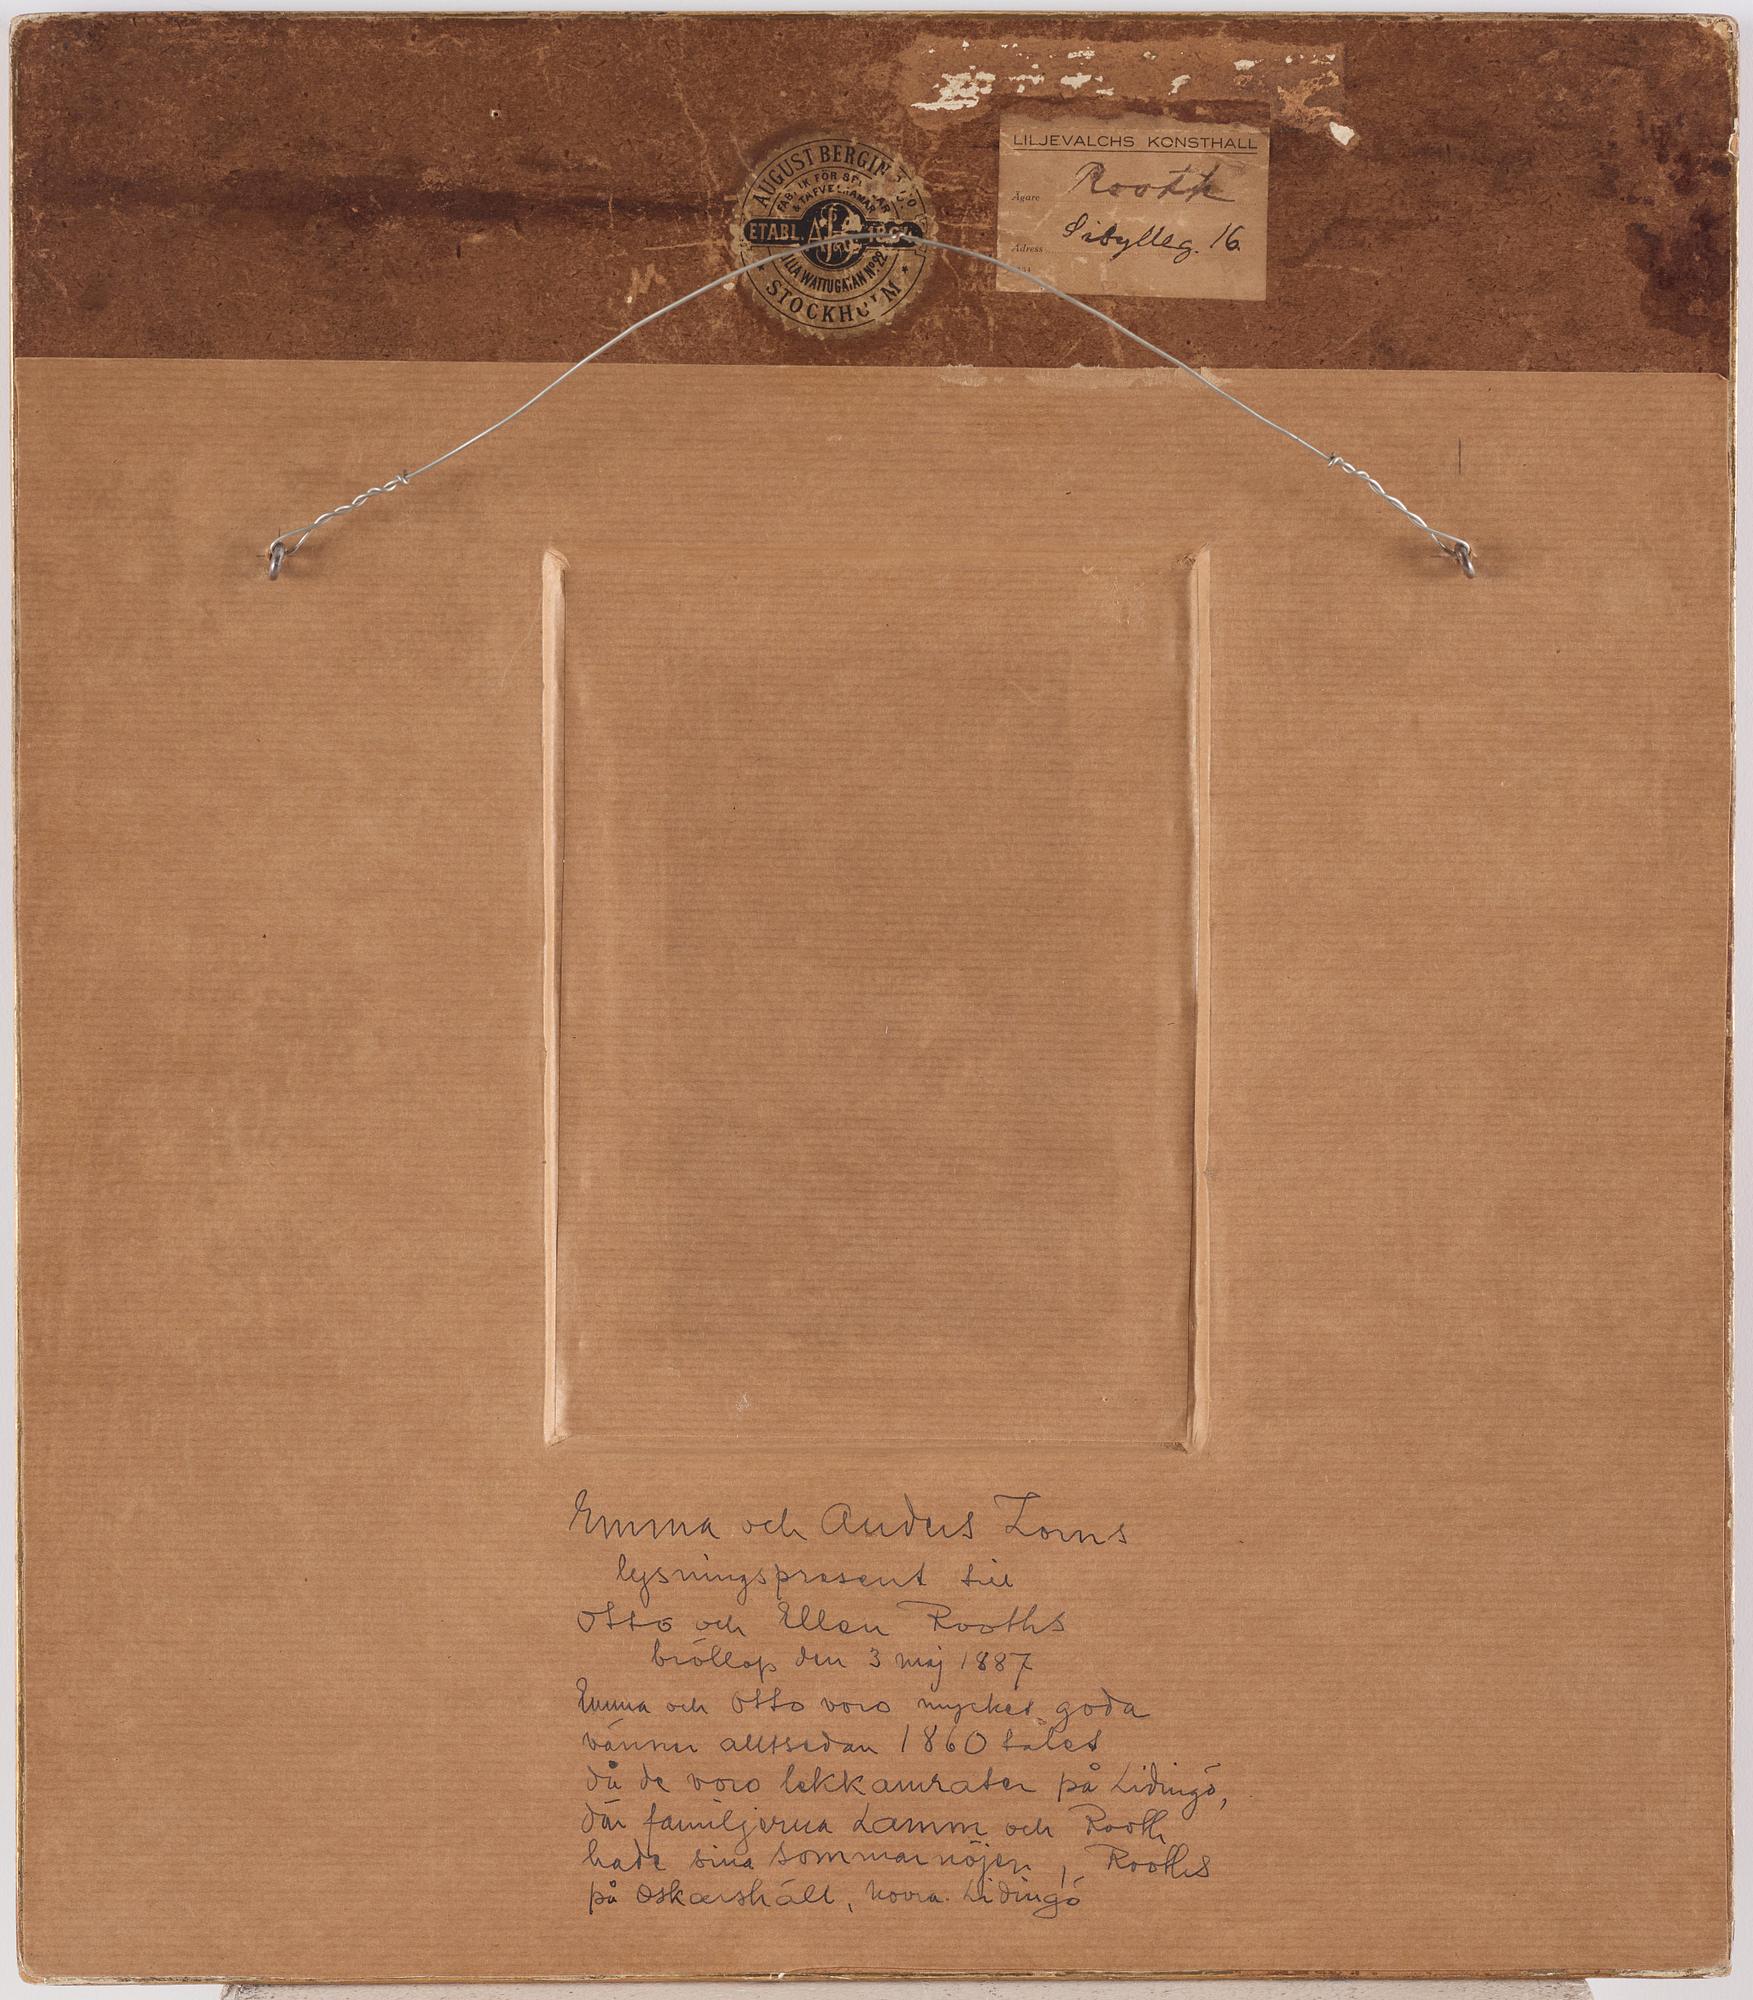 AUGUST BERGIN
ETABL.
STOCKHOLM
LILJEVALCHS KONSTHALL
Ägare Rooth
Adress Sibylleg. 16
Emma och Anders Zorns
lysningspresent till
Otto och Ellen Rooths
bröllop den 3 maj 1887
Emma och Otto voro mycket goda
vänner alltsedan 1860 talet
då de voro lekkamrater på Lidingö,
där familjerna Lamm och Rooth
hade sina sommarnöjen, Rooths
på Oskarshäll, norra Lidingö